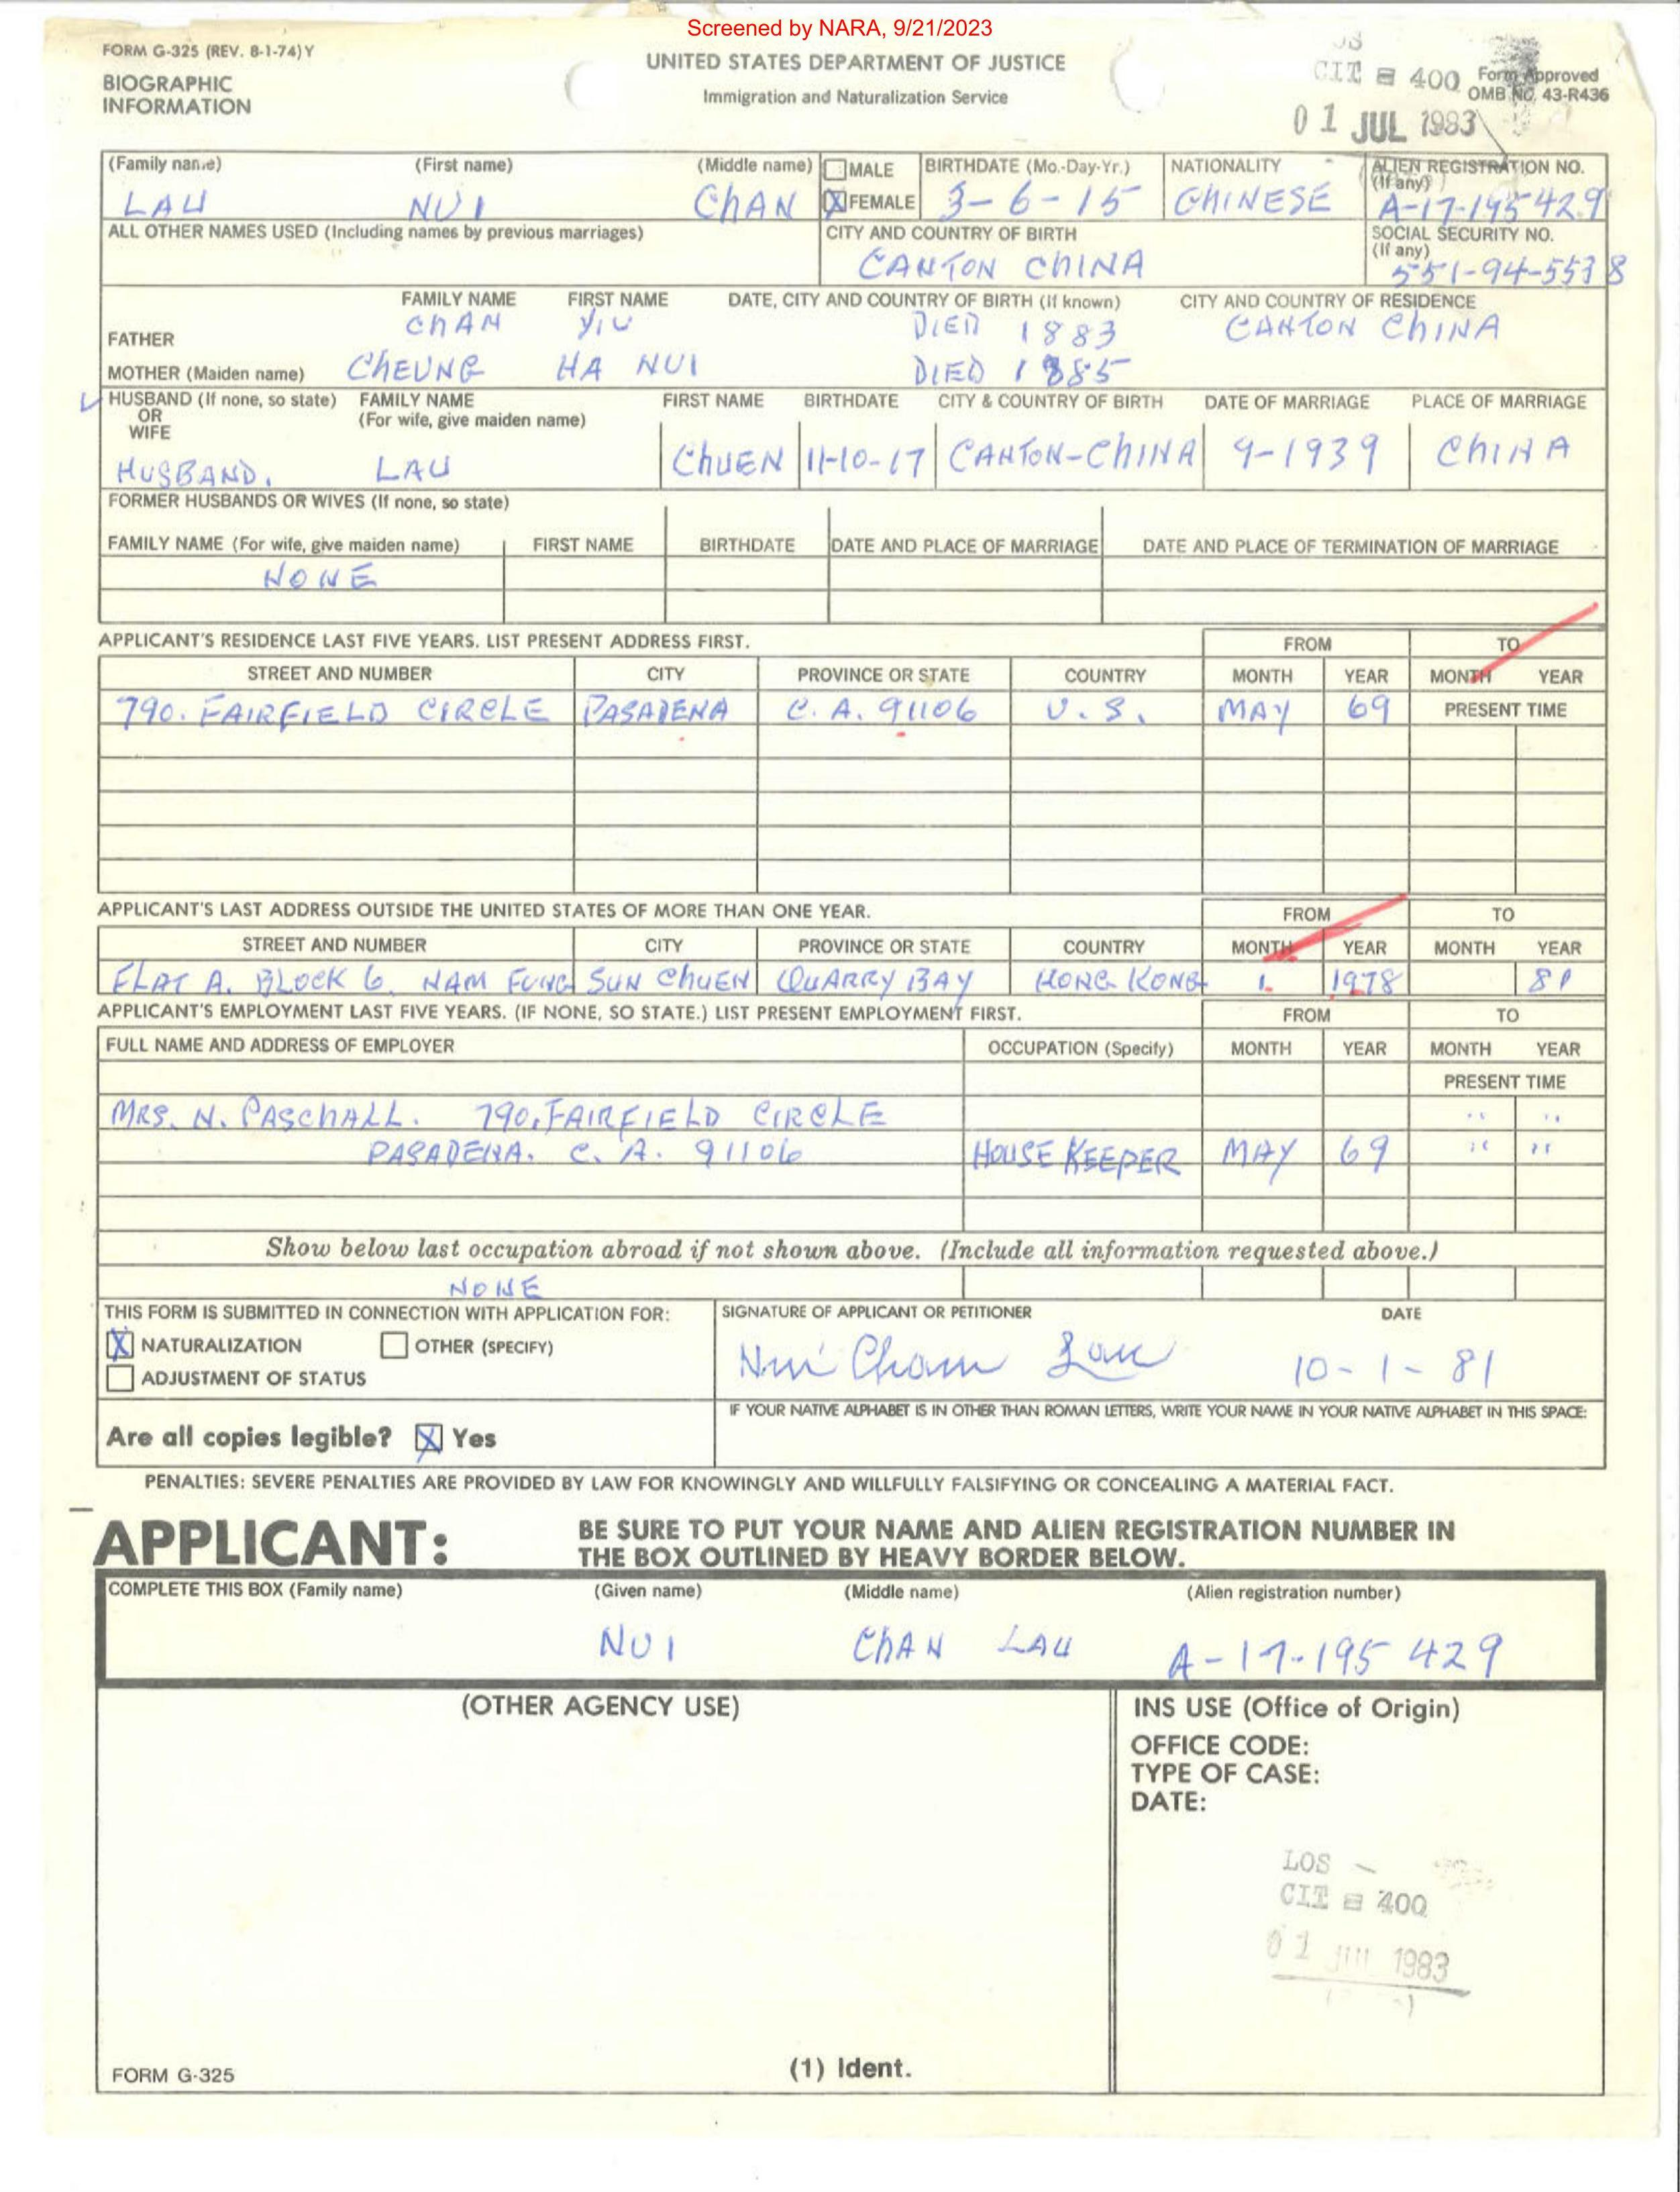 Screened by NARA, 9/21/2023
FORM G-325 (REV. 8-1-74) Y
UNITED STATES DEPARTMENT OF JUSTICE
BIOGRAPHIC
INFORMATION
Immigration and Naturalization Service
CIT 400
Form Approved
OMB NO. 43-R436
01 JUL 1983
(Family name) (First name) (Middle name) MALE BIRTHDATE (Mo.-Day-Yr.) NATIONALITY ALIEN REGISTRATION NO.
(If any)
LAU NUI CHAN X FEMALE 3-6-15 CHINESE A-17-195-429
ALL OTHER NAMES USED (Including names by previous marriages) CITY AND COUNTRY OF BIRTH SOCIAL SECURITY NO.
(If any)
CANTON CHINA 551-94-5538
FAMILY NAME FIRST NAME DATE, CITY AND COUNTRY OF BIRTH (If known) CITY AND COUNTRY OF RESIDENCE
FATHER CHAN YIU DIED 1883 CANTON CHINA
MOTHER (Maiden name) CHEUNG HA NUI DIED 1885
HUSBAND (If none, so state) FAMILY NAME FIRST NAME BIRTHDATE CITY & COUNTRY OF BIRTH DATE OF MARRIAGE PLACE OF MARRIAGE
OR (For wife, give maiden name)
WIFE
HUSBAND. LAU CHUEN 11-10-17 CANTON-CHINA 9-1939 CHINA
FORMER HUSBANDS OR WIVES (If none, so state)
FAMILY NAME (For wife, give maiden name) FIRST NAME BIRTHDATE DATE AND PLACE OF MARRIAGE DATE AND PLACE OF TERMINATION OF MARRIAGE
NONE
APPLICANT'S RESIDENCE LAST FIVE YEARS. LIST PRESENT ADDRESS FIRST. FROM TO
STREET AND NUMBER CITY PROVINCE OR STATE COUNTRY MONTH YEAR MONTH YEAR
790. FAIRFIELD CIRCLE PASADENA C. A. 91106 U. S. MAY 69 PRESENT TIME
APPLICANT'S LAST ADDRESS OUTSIDE THE UNITED STATES OF MORE THAN ONE YEAR. FROM TO
STREET AND NUMBER CITY PROVINCE OR STATE COUNTRY MONTH YEAR MONTH YEAR
FLAT A. BLOCK 6. NAM FUNG SUN CHUEN QUARRY BAY HONG KONG 1. 1978 81
APPLICANT'S EMPLOYMENT LAST FIVE YEARS. (IF NONE, SO STATE.) LIST PRESENT EMPLOYMENT FIRST. FROM TO
FULL NAME AND ADDRESS OF EMPLOYER OCCUPATION (Specify) MONTH YEAR MONTH YEAR
PRESENT TIME
MRS. N. PASCHALL. 790. FAIRFIELD CIRCLE " "
PASADENA. C. A. 91106 HOUSE KEEPER MAY 69 " "
Show below last occupation abroad if not shown above. (Include all information requested above.)
NONE
THIS FORM IS SUBMITTED IN CONNECTION WITH APPLICATION FOR: SIGNATURE OF APPLICANT OR PETITIONER DATE
X NATURALIZATION OTHER (SPECIFY)
ADJUSTMENT OF STATUS
Nui Chan Lau 10-1-81
IF YOUR NATIVE ALPHABET IS IN OTHER THAN ROMAN LETTERS, WRITE YOUR NAME IN YOUR NATIVE ALPHABET IN THIS SPACE:
Are all copies legible? X Yes
PENALTIES: SEVERE PENALTIES ARE PROVIDED BY LAW FOR KNOWINGLY AND WILLFULLY FALSIFYING OR CONCEALING A MATERIAL FACT.
APPLICANT: BE SURE TO PUT YOUR NAME AND ALIEN REGISTRATION NUMBER IN
THE BOX OUTLINED BY HEAVY BORDER BELOW.
COMPLETE THIS BOX (Family name) (Given name) (Middle name) (Alien registration number)
NUI CHAN LAU A-17-195 429
(OTHER AGENCY USE) INS USE (Office of Origin)
OFFICE CODE:
TYPE OF CASE:
DATE:
LOS
CIT 400
01 JUL 1983
FORM G-325 (1) Ident.